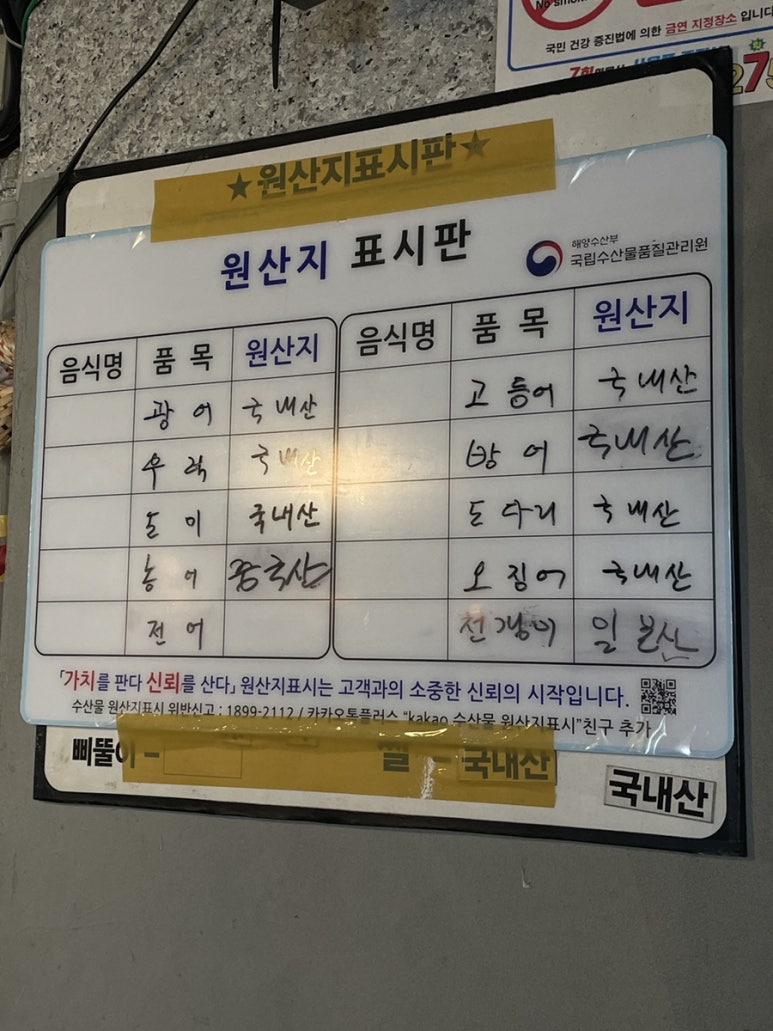 No smoking
국민 건강 증진법에 의한 금연 지정장소 입니다
★원산지표시판★
원산지 표시판
해양수산부
국립수산물품질관리원
음식명 품 목 원산지 음식명 품 목 원산지
광 어 국내산 고 등어 국내산
우 럭 국내산 방 어 국내산
도미 국내산 도다리 국내산
농 어 중국산 오징어 국내산
전 어 전갱이 일본산
「가치를 판다 신뢰를 산다」 원산지표시는 고객과의 소중한 신뢰의 시작입니다.
수산물 원산지표시 위반신고 : 1899-2112 / 카카오톡플러스 "kakao 수산물 원산지표시"친구 추가
삐뚤이 - 쌀 - 국내산
국내산